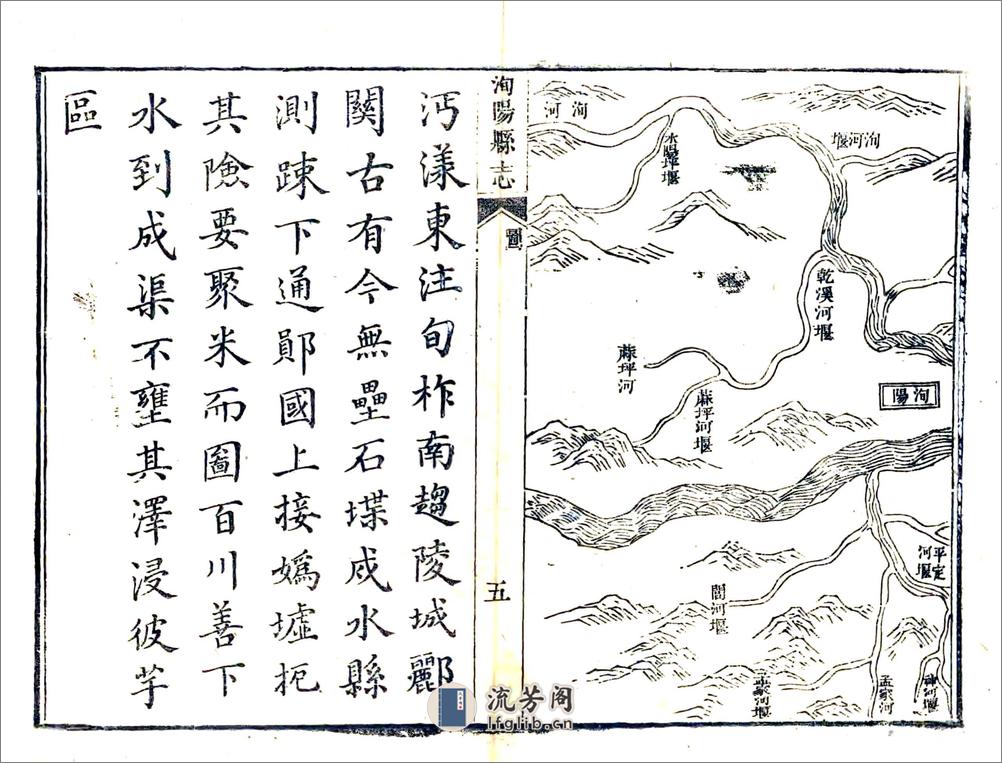 洵河
水陽坪堰
洵河堰
乾溪河堰
蔴坪河
蔴坪河堰
洵陽
平定河堰
閭河堰
孟家河
神河堰
洵陽縣志
圖
五
沔漾東注旬柞南趨陵城酈
關古有今無壘石堞戍水縣
測踈下通鄖國上接嬀墟扼
其險要聚米而圖百川善下
水到成渠不壅其澤浸彼芋
區
流芳阁
lfglib.cn